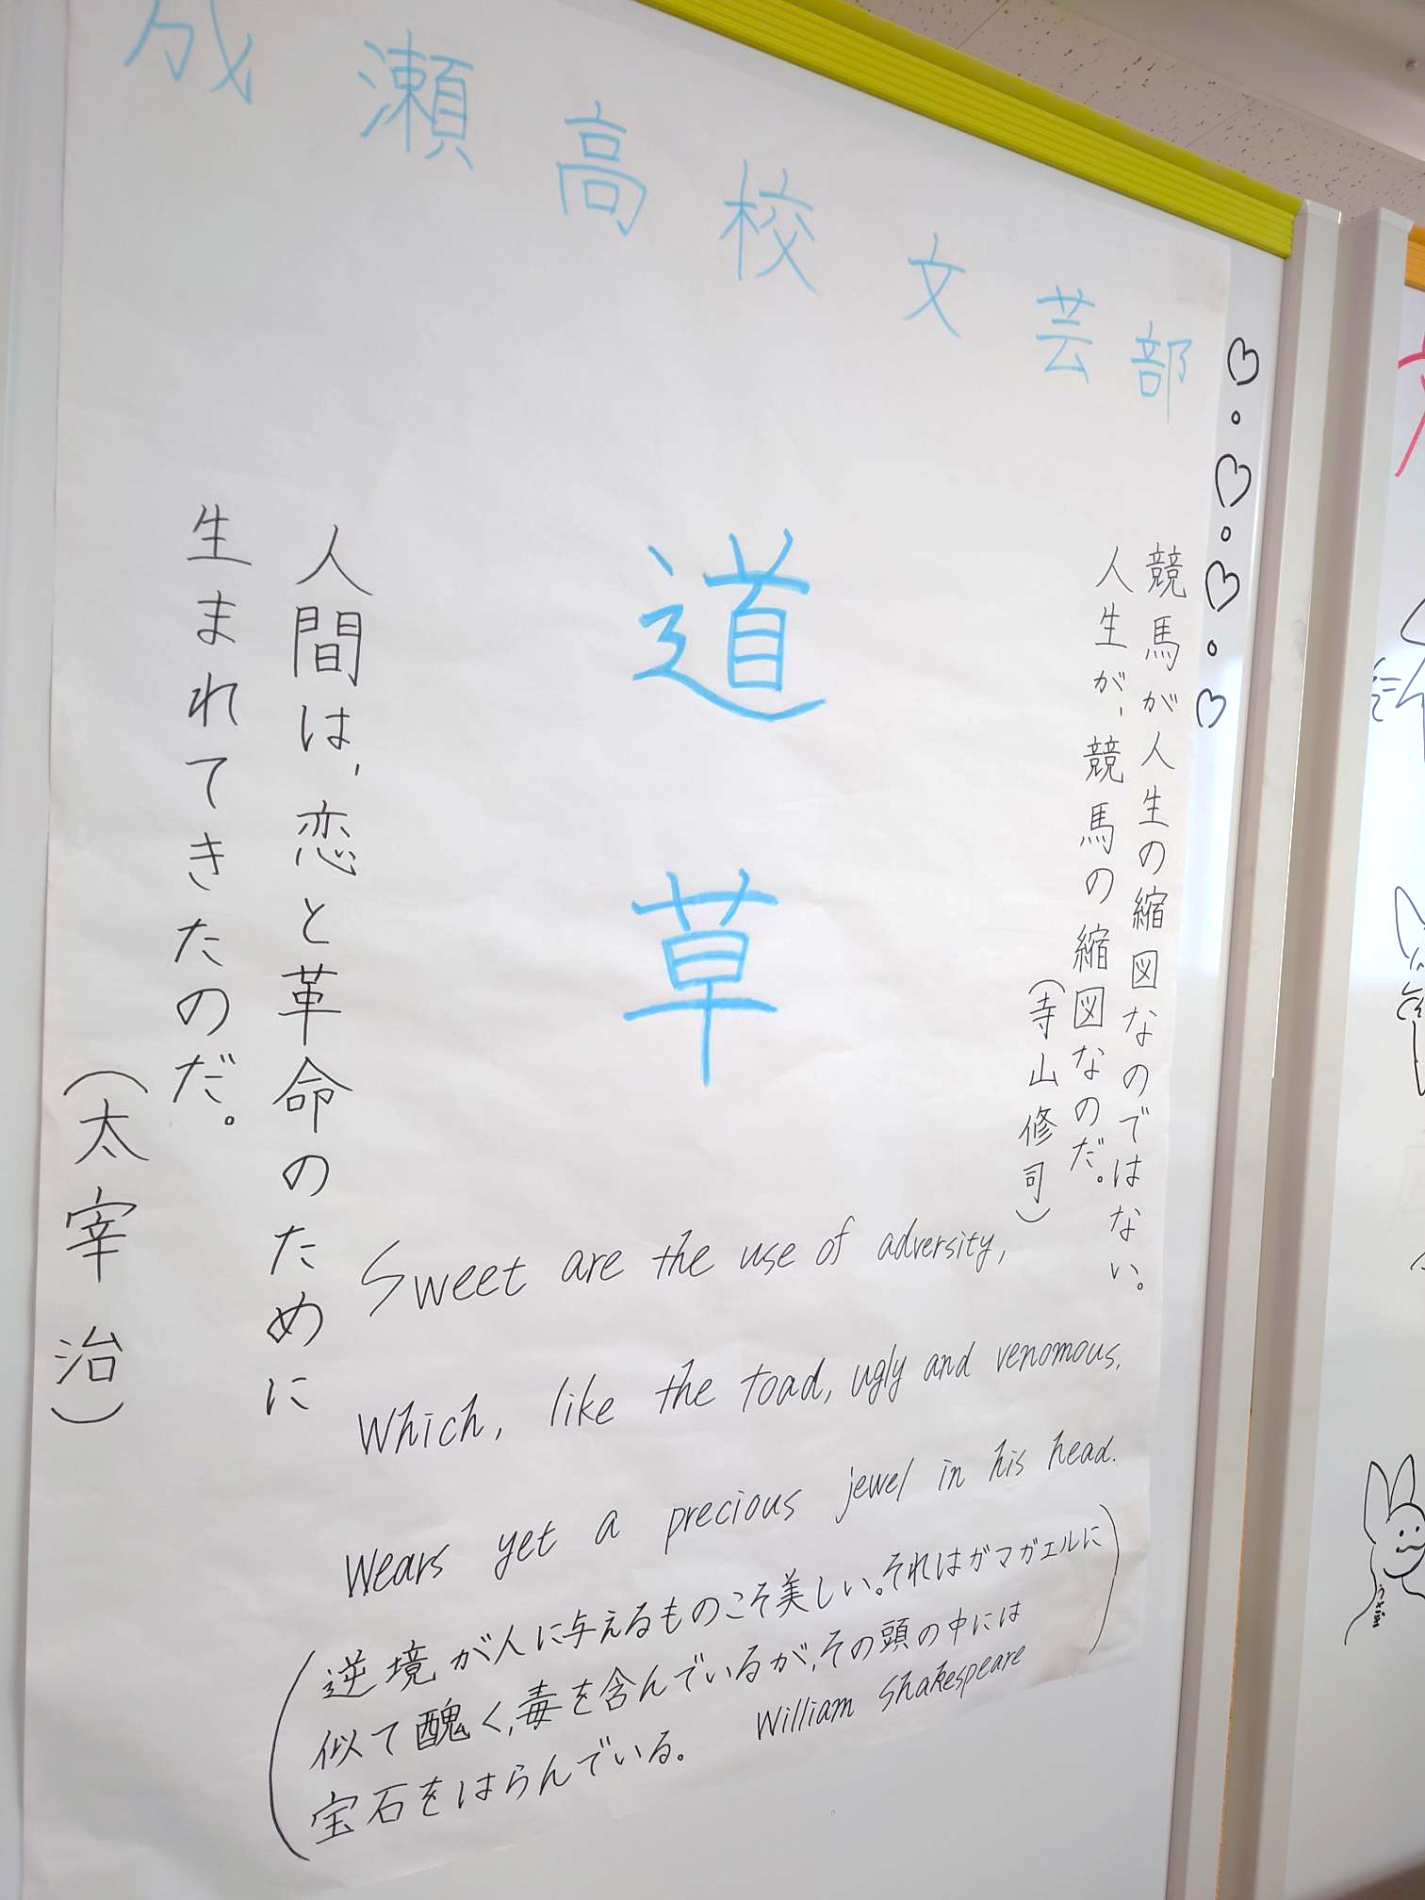 成瀬高校文芸部
道草
競馬が人生の縮図なのではない。
人生が、競馬の縮図なのだ。
(寺山修司)
人間は、恋と革命のために
生まれてきたのだ。
(太宰治)
Sweet are the use of adversity,
Which, like the toad, ugly and venomous,
Wears yet a precious jewel in his head.
(逆境が人に与えるものこそ美しい。それはガマガエルに
似て醜く、毒を含んでいるが、その頭の中には
宝石をはらんでいる。 William Shakespeare)